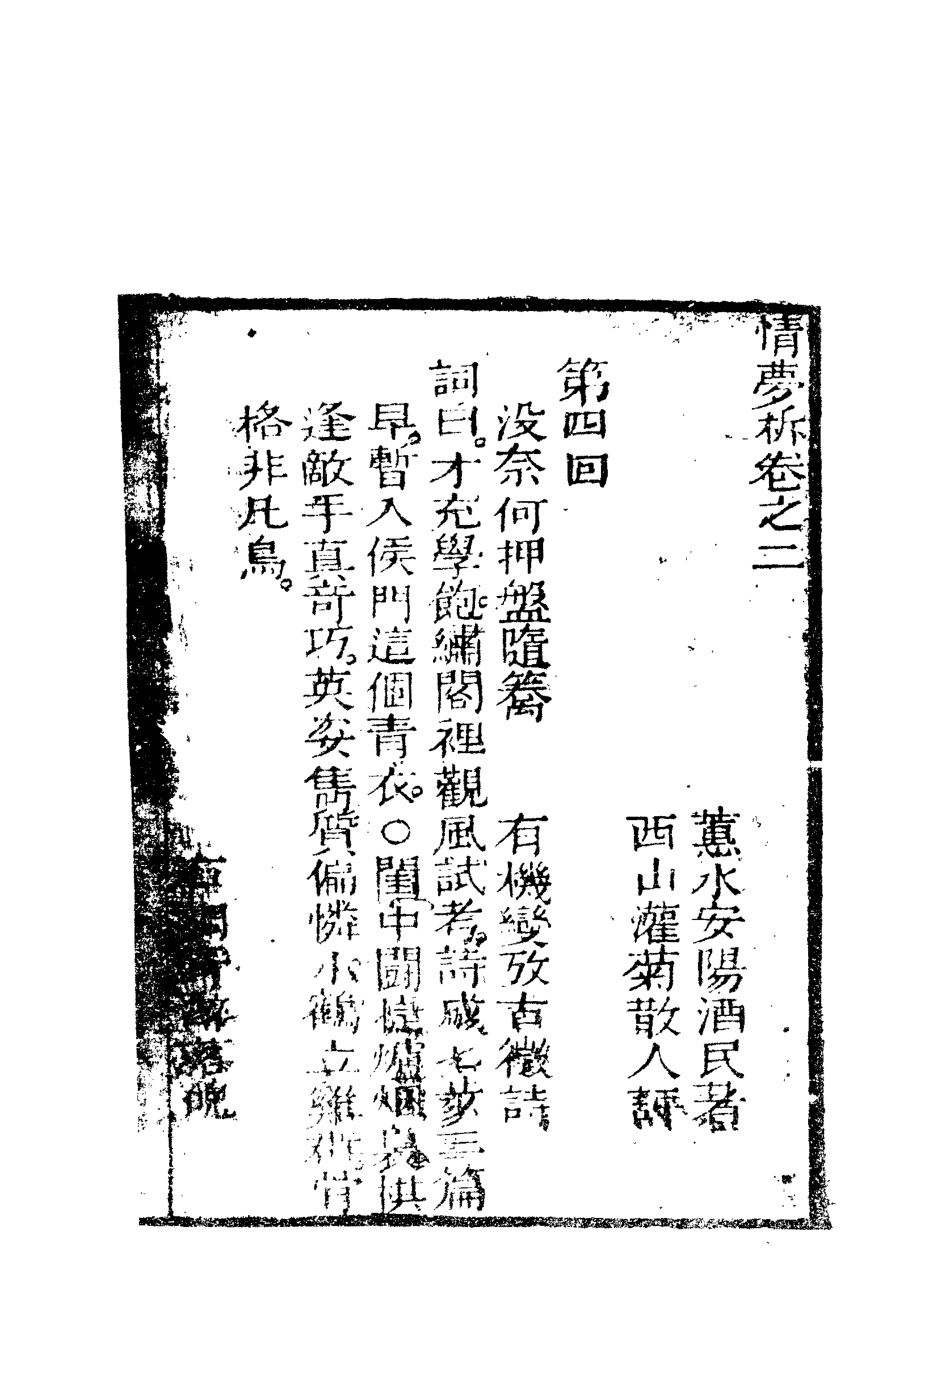 情夢柝卷之二
蕙水安陽酒民著
西山灌菊散人評
第四回
没奈何押盤隨篙 有機變攷古徵詩
詞曰。才充學飽。繡閣裡觀風試考。詩成七步三篇
早。暫入侯門這個青衣。〇閨中鬪
逢敵手真竒巧。英姿雋質偏憐小鶴立雞
格非凡鳥。